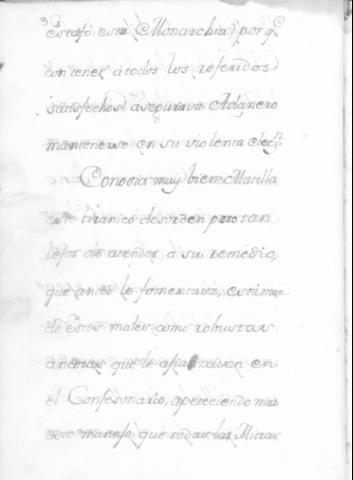 estafó esta Monarchia) porq̃
con tener á todos los referidos
satisfechos asegurava Adanero
mantenerse en su violenta elecn.
Conocia muy bien Matilla
este tiranico desorden pero tan
lejos de atender á su remedio,
que antes le fomentava, estiman
do estos males como robustas
ancoras que le afianzasen en
el Confesonario, apeteciendo mas
este manejo que todas las Mitras